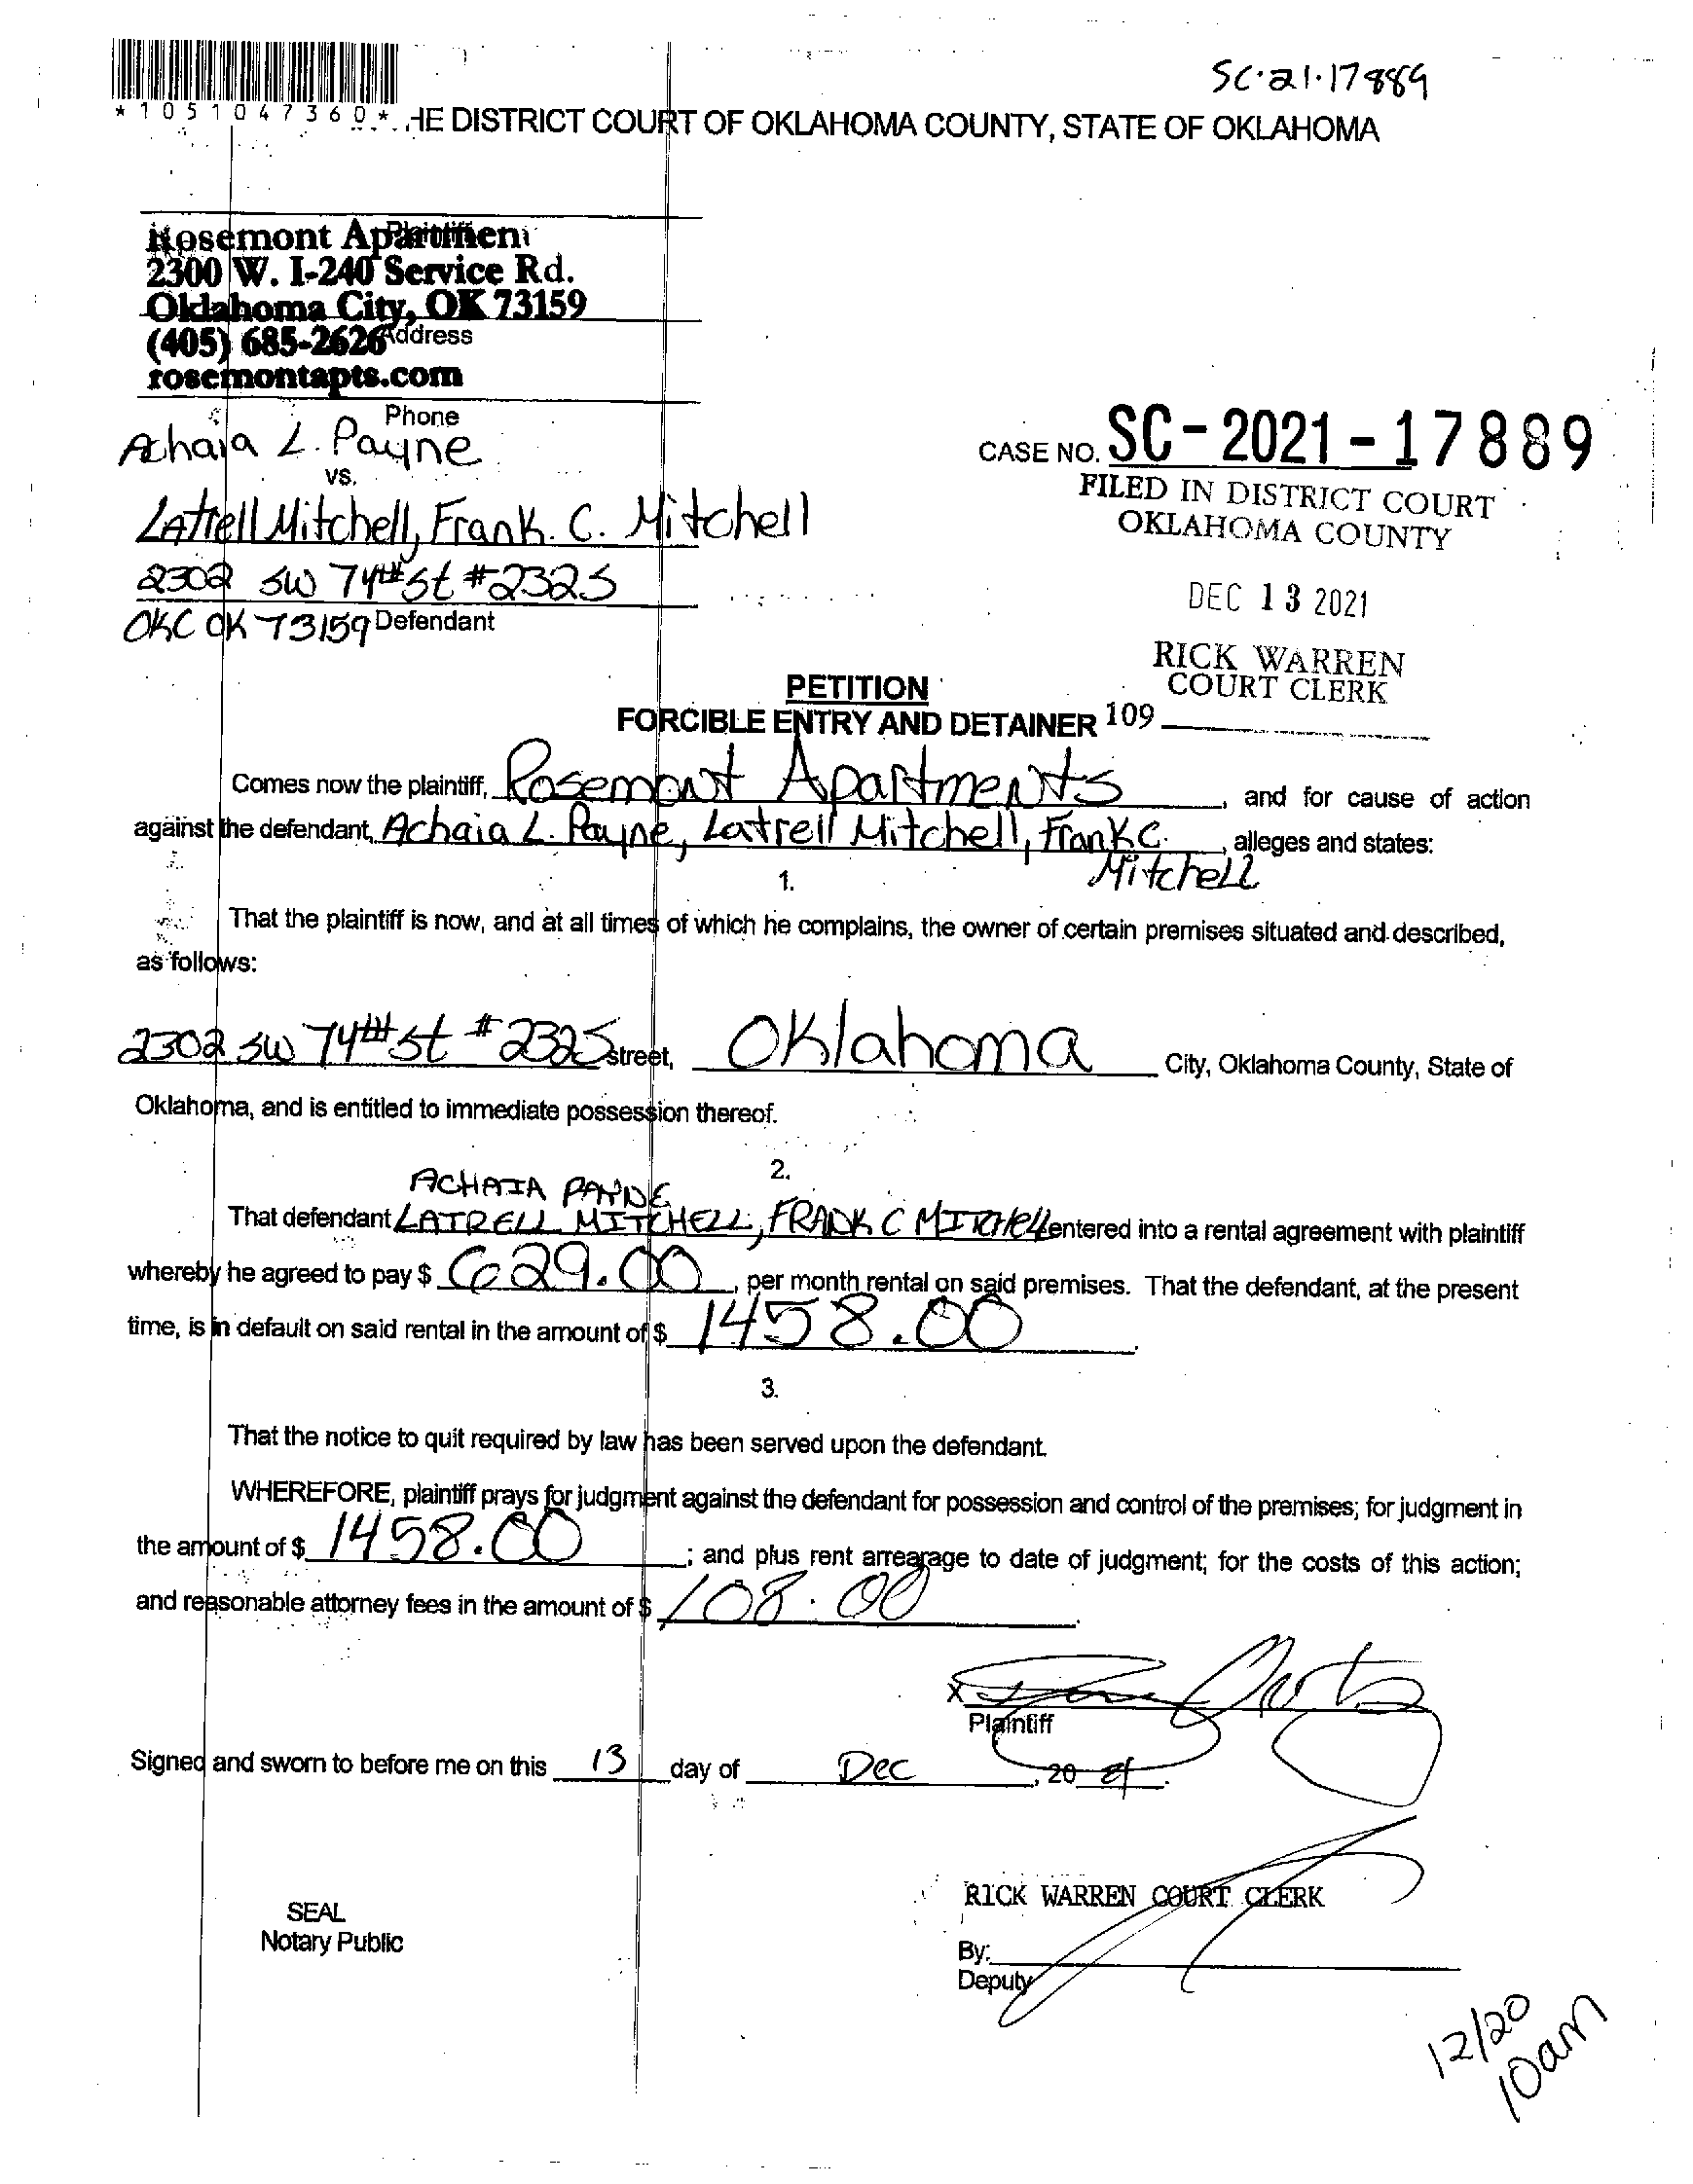 SC-21-17889
*1051047360*
HE DISTRICT COURT OF OKLAHOMA COUNTY, STATE OF OKLAHOMA
Rosemont Apartment
Plaintiff
2300 W. I-240 Service Rd.
Oklahoma City, OK 73159
(405) 685-2626
Address
rosemontapts.com
Phone
Achaia L. Payne
vs.
Latrell Mitchell, Frank. C. Mitchell
2302 SW 74th St #2325
OKC OK 73159 Defendant
CASE NO. SC-2021-17889
FILED IN DISTRICT COURT
OKLAHOMA COUNTY
DEC 13 2021
RICK WARREN
COURT CLERK
109
PETITION
FORCIBLE ENTRY AND DETAINER
Comes now the plaintiff, Rosemont Apartments, and for cause of action
against the defendant, Achaia L. Payne, Latrell Mitchell, Frank C. Mitchell, alleges and states:
1.
That the plaintiff is now, and at all times of which he complains, the owner of certain premises situated and described,
as follows:
2302 SW 74th St #2325 street, Oklahoma City, Oklahoma County, State of
Oklahoma, and is entitled to immediate possession thereof.
2.
ACHAIA PAYNE
That defendant LATRELL MITCHELL, FRANK C MITCHELL entered into a rental agreement with plaintiff
whereby he agreed to pay $ 629.00, per month rental on said premises. That the defendant, at the present
time, is in default on said rental in the amount of $ 1458.00.
3.
That the notice to quit required by law has been served upon the defendant.
WHEREFORE, plaintiff prays for judgment against the defendant for possession and control of the premises; for judgment in
the amount of $ 1458.00; and plus rent arrearage to date of judgment; for the costs of this action;
and reasonable attorney fees in the amount of $ 108.00.
X
Plaintiff
Signed and sworn to before me on this 13 day of Dec, 20 21.
SEAL
Notary Public
RICK WARREN COURT CLERK
By:
Deputy
12/20
10am